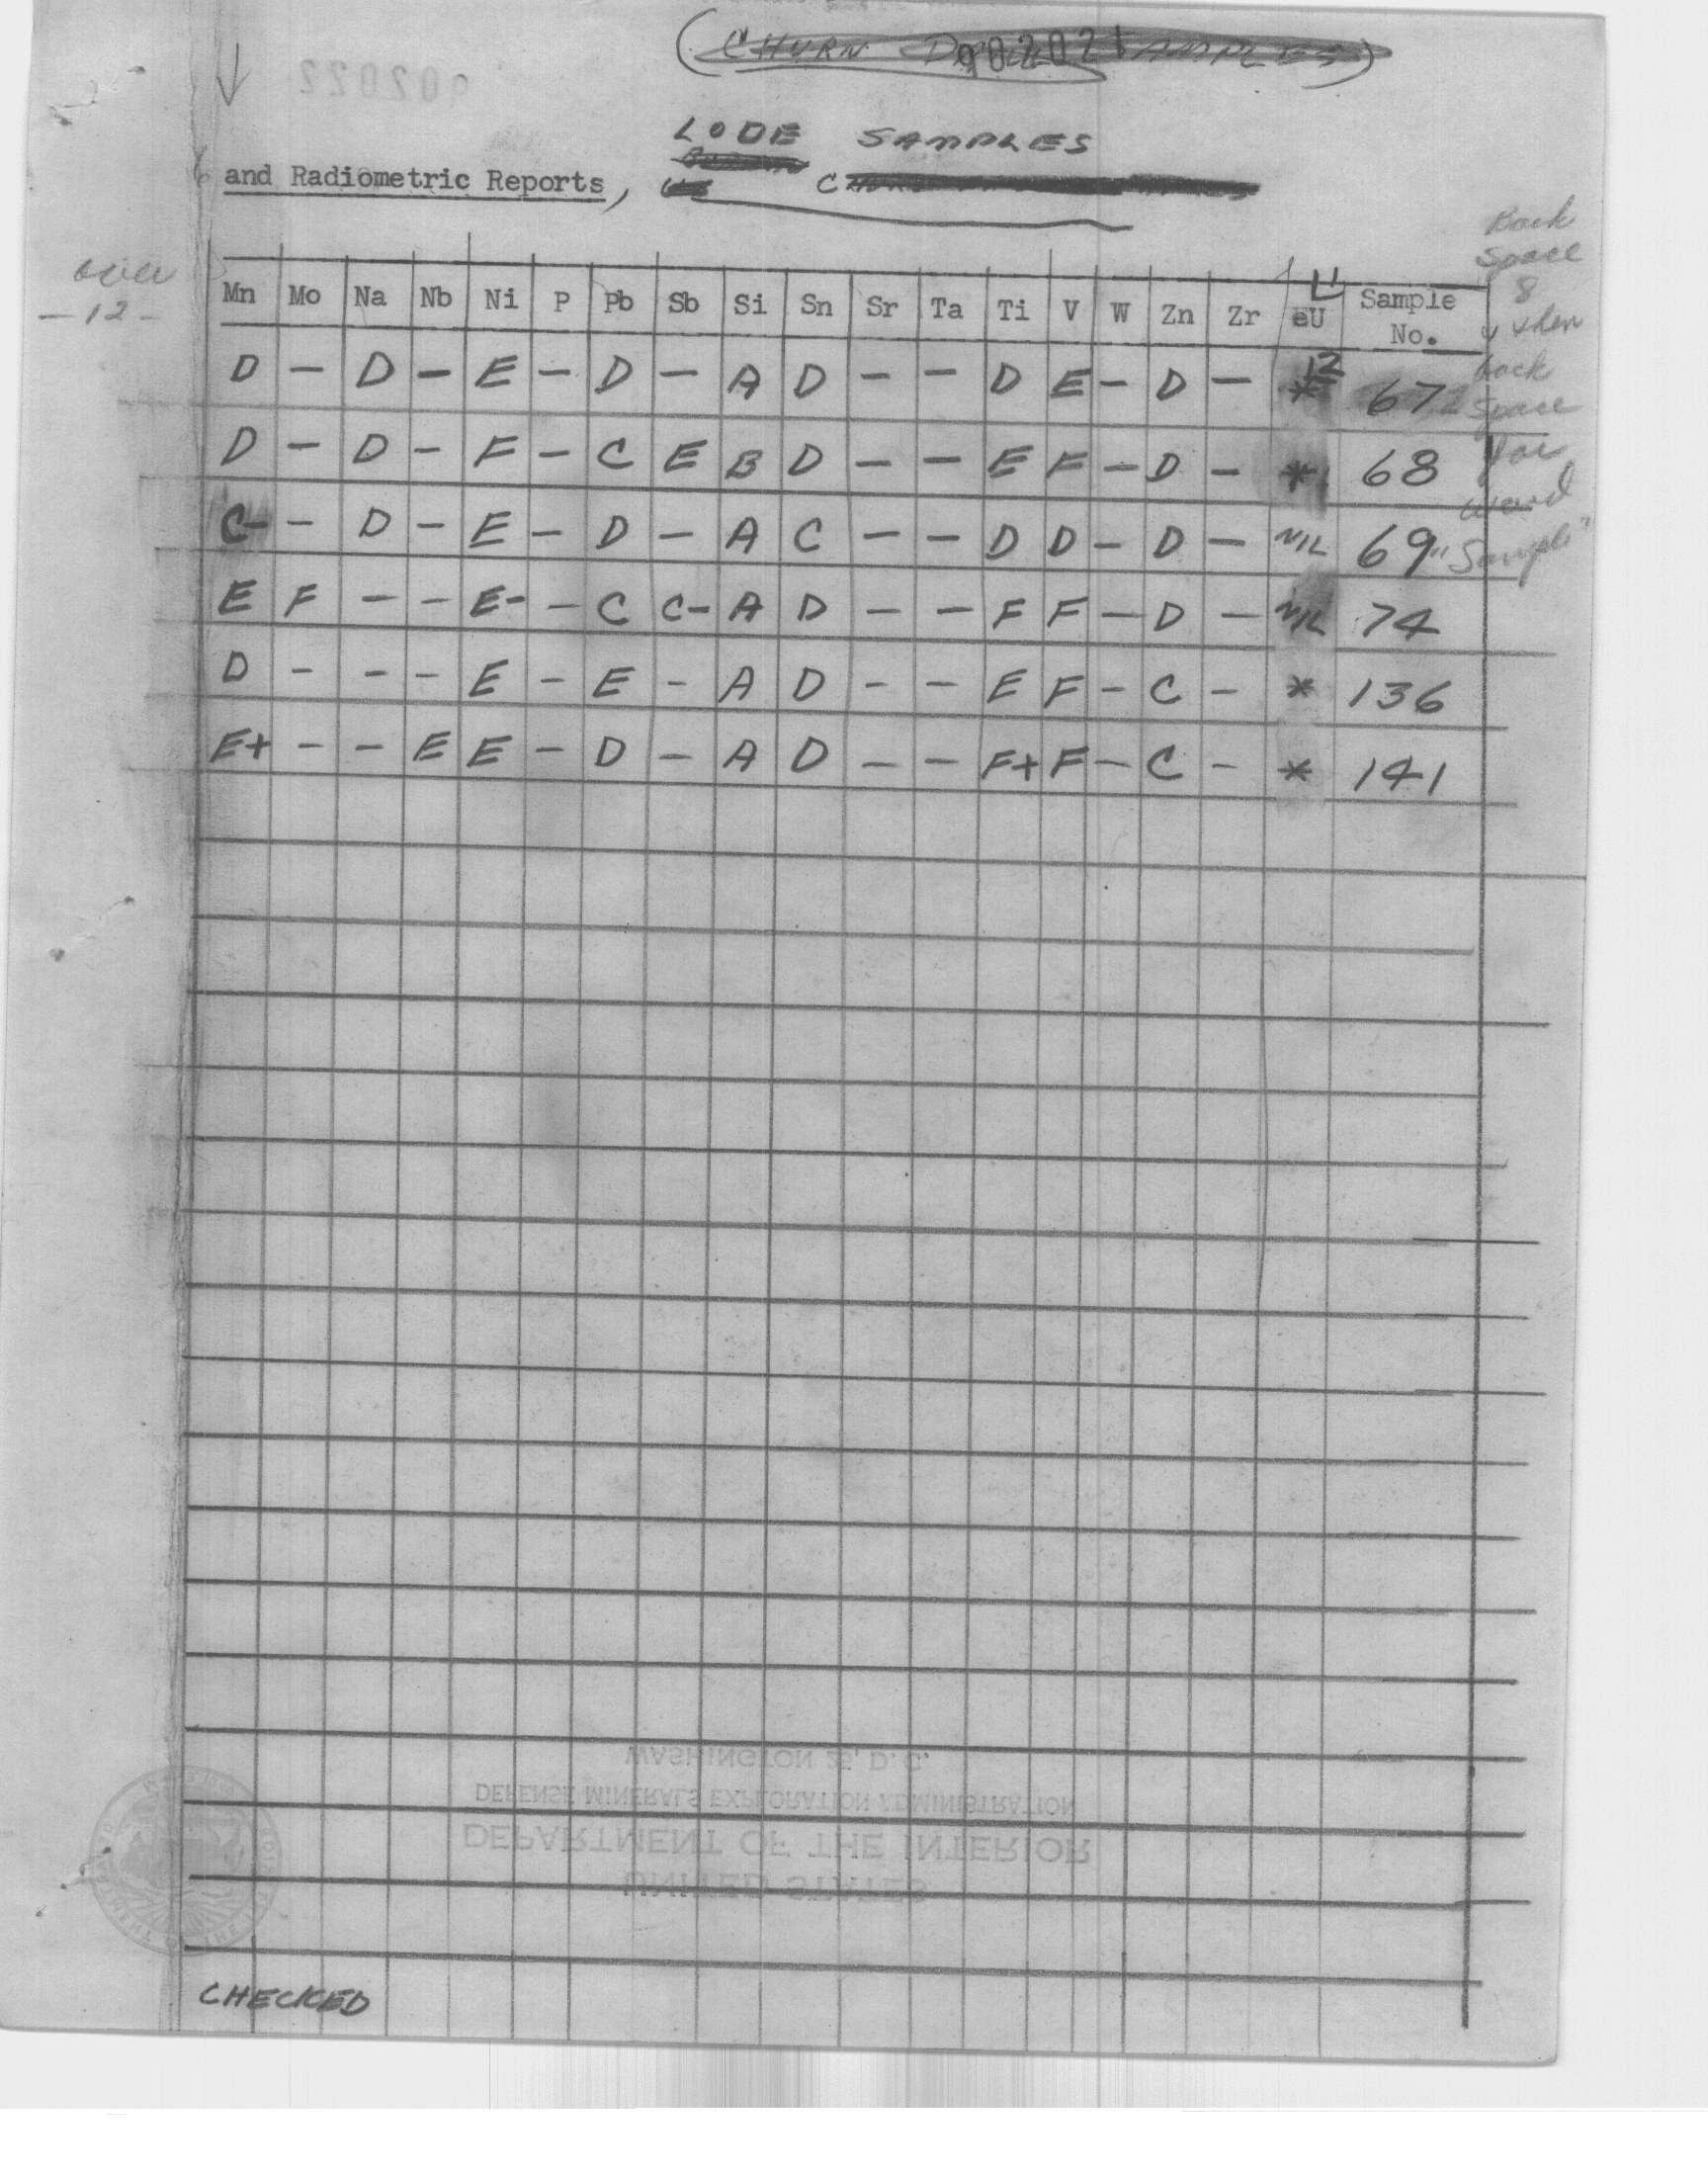 (CHURN D 902021 SAMPLES)
902022
LODE SAMPLES
and Radiometric Reports,
over
-12-
Back
Space
8
& then
back
space
for
word
"Sample"
Mn Mo Na Nb Ni P Pb Sb Si Sn Sr Ta Ti V W Zn Zr eU Sample No.
D - D - E - D - A D - - D E - D - * 12 67
D - D - F - C E B D - - E F - D - * 68
C- - D - E - D - A C - - D D - D - NIL 69
E F - - E- - C C- A D - - F F - D - NIL 74
D - - - E - E - A D - - E F - C - * 136
E+ - - E E - D - A D - - F+ F - C - * 141
WASHINGTON 25, D. C.
DEFENSE MINERALS EXPLORATION ADMINISTRATION
DEPARTMENT OF THE INTERIOR
UNITED STATES
CHECKED